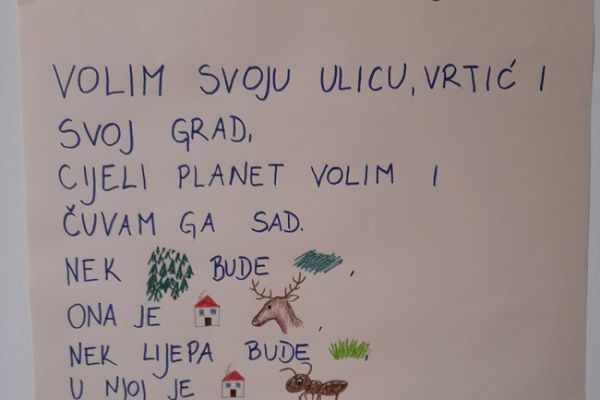 VOLIM SVOJU ULICU, VRTIĆ I
SVOJ GRAD,
CIJELI PLANET VOLIM I
ČUVAM GA SAD.
NEK BUDE ,
ONA JE ,
NEK LIJEPA BUDE ,
U NJOJ JE